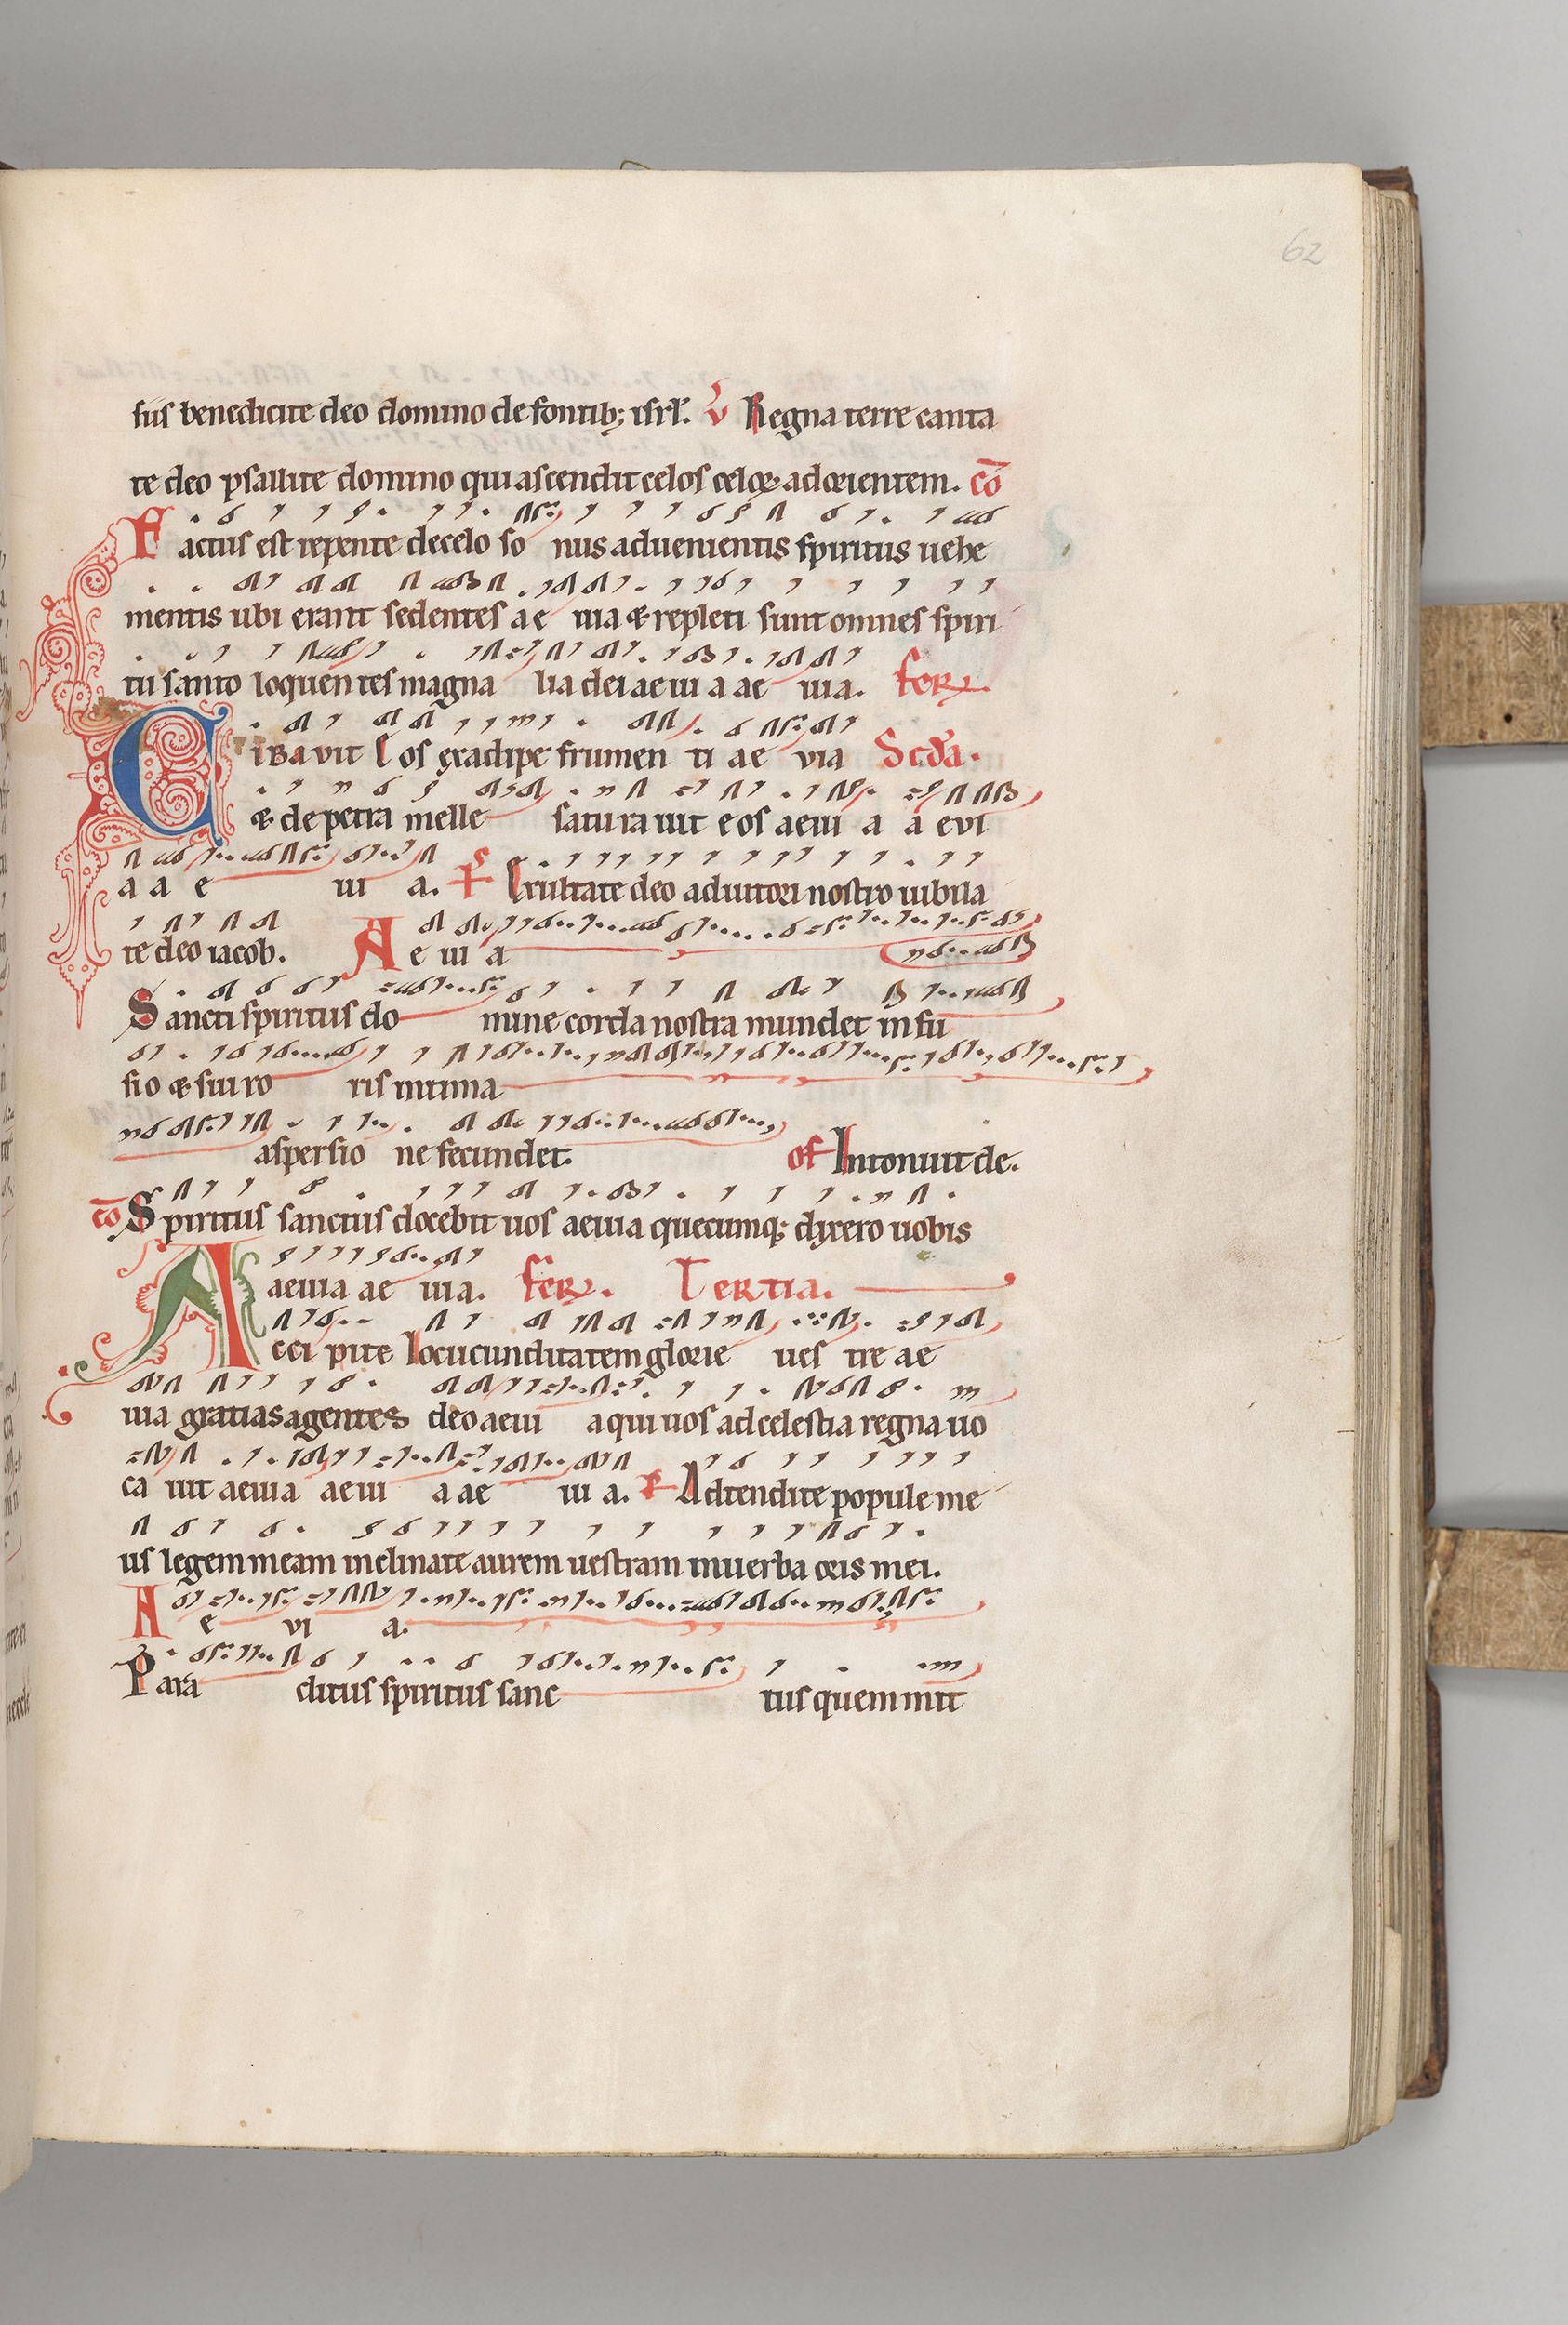 62
siis benedicite deo domino de fontib; isrl̄. v Regna terre canta
te deo psallite domino qui ascendit celos celoꝝ ad orientem. cō
Factus est repente de celo so nus aduenientis spiritus uehe
mentis ubi erant sedentes ae uia & repleti sunt omnes spiri
tu santo loquentes magna lia dei aeuia ae uia. Fer
Cibavit Eos ex adipe frumen ti ae via Scd̄a.
& de petra melle saturauit eos aeui a a evi
a a e ui a. Ps Exultate deo adiutori nostro iubila
te deo iacob. Ae ui a
Sancti spiritus do mine corda nostra mundet infu
sio & sui ro ris intima
aspersio ne fecundet. of Intonuit de.
cō Spiritus sanctus docebit uos aeuia quecumq; dixero uobis
aeuia ae uia. Fer. Tertia.
Acci pite Iocucunditatem glorie ues tre ae
uia gratias agentes deo aeui a qui uos ad celestia regna uo
ca uit aeuia aeui a ae ui a. Ps Adtendite popule me
us legem meam inclinate aurem uestram in uerba oris mei.
A e vi a.
Para clitus spiritus sanc tus quem mit